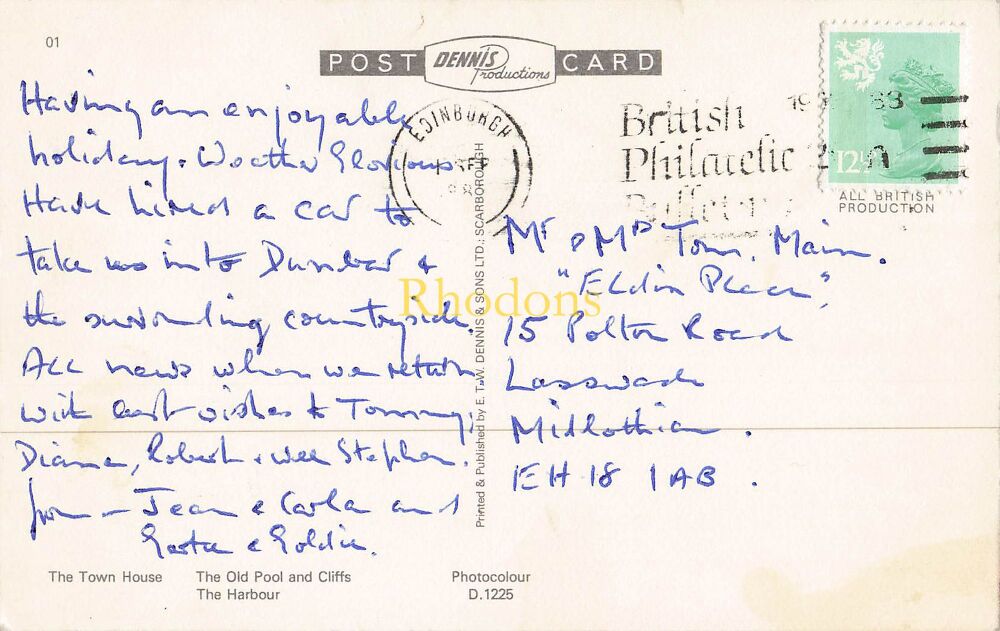 01
POST DENNIS Productions CARD
EDINBURGH
British
Philatelic
Bulletin
12½
ALL BRITISH
PRODUCTION
Having an enjoyable
holiday. Weather Glorious.
Have hired a car to
take us into Dunbar &
the surrounding countryside.
All news when we return
with best wishes to Tommy,
Diana, Robert & wee Stephen.
from — Jean & Carla and
& Goldie.
Mr & Mrs Tom. Main.
"Eldin Place",
15 Polton Road
Lasswade
Midlothian.
EH 18 1AB.
Printed & Published by E. T. W. DENNIS & SONS LTD., SCARBOROUGH
Rhodons
The Town House The Old Pool and Cliffs Photocolour
The Harbour D.1225